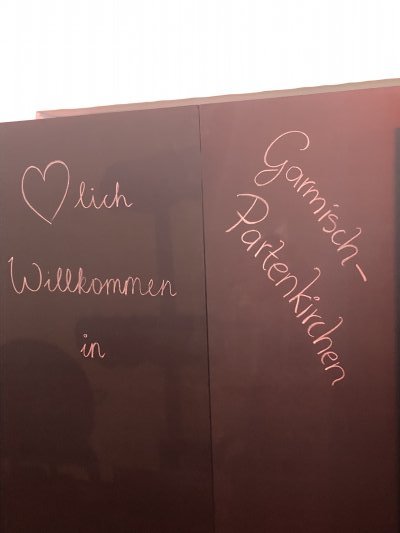 ♡lich
Willkommen
in
Garmisch-
Partenkirchen